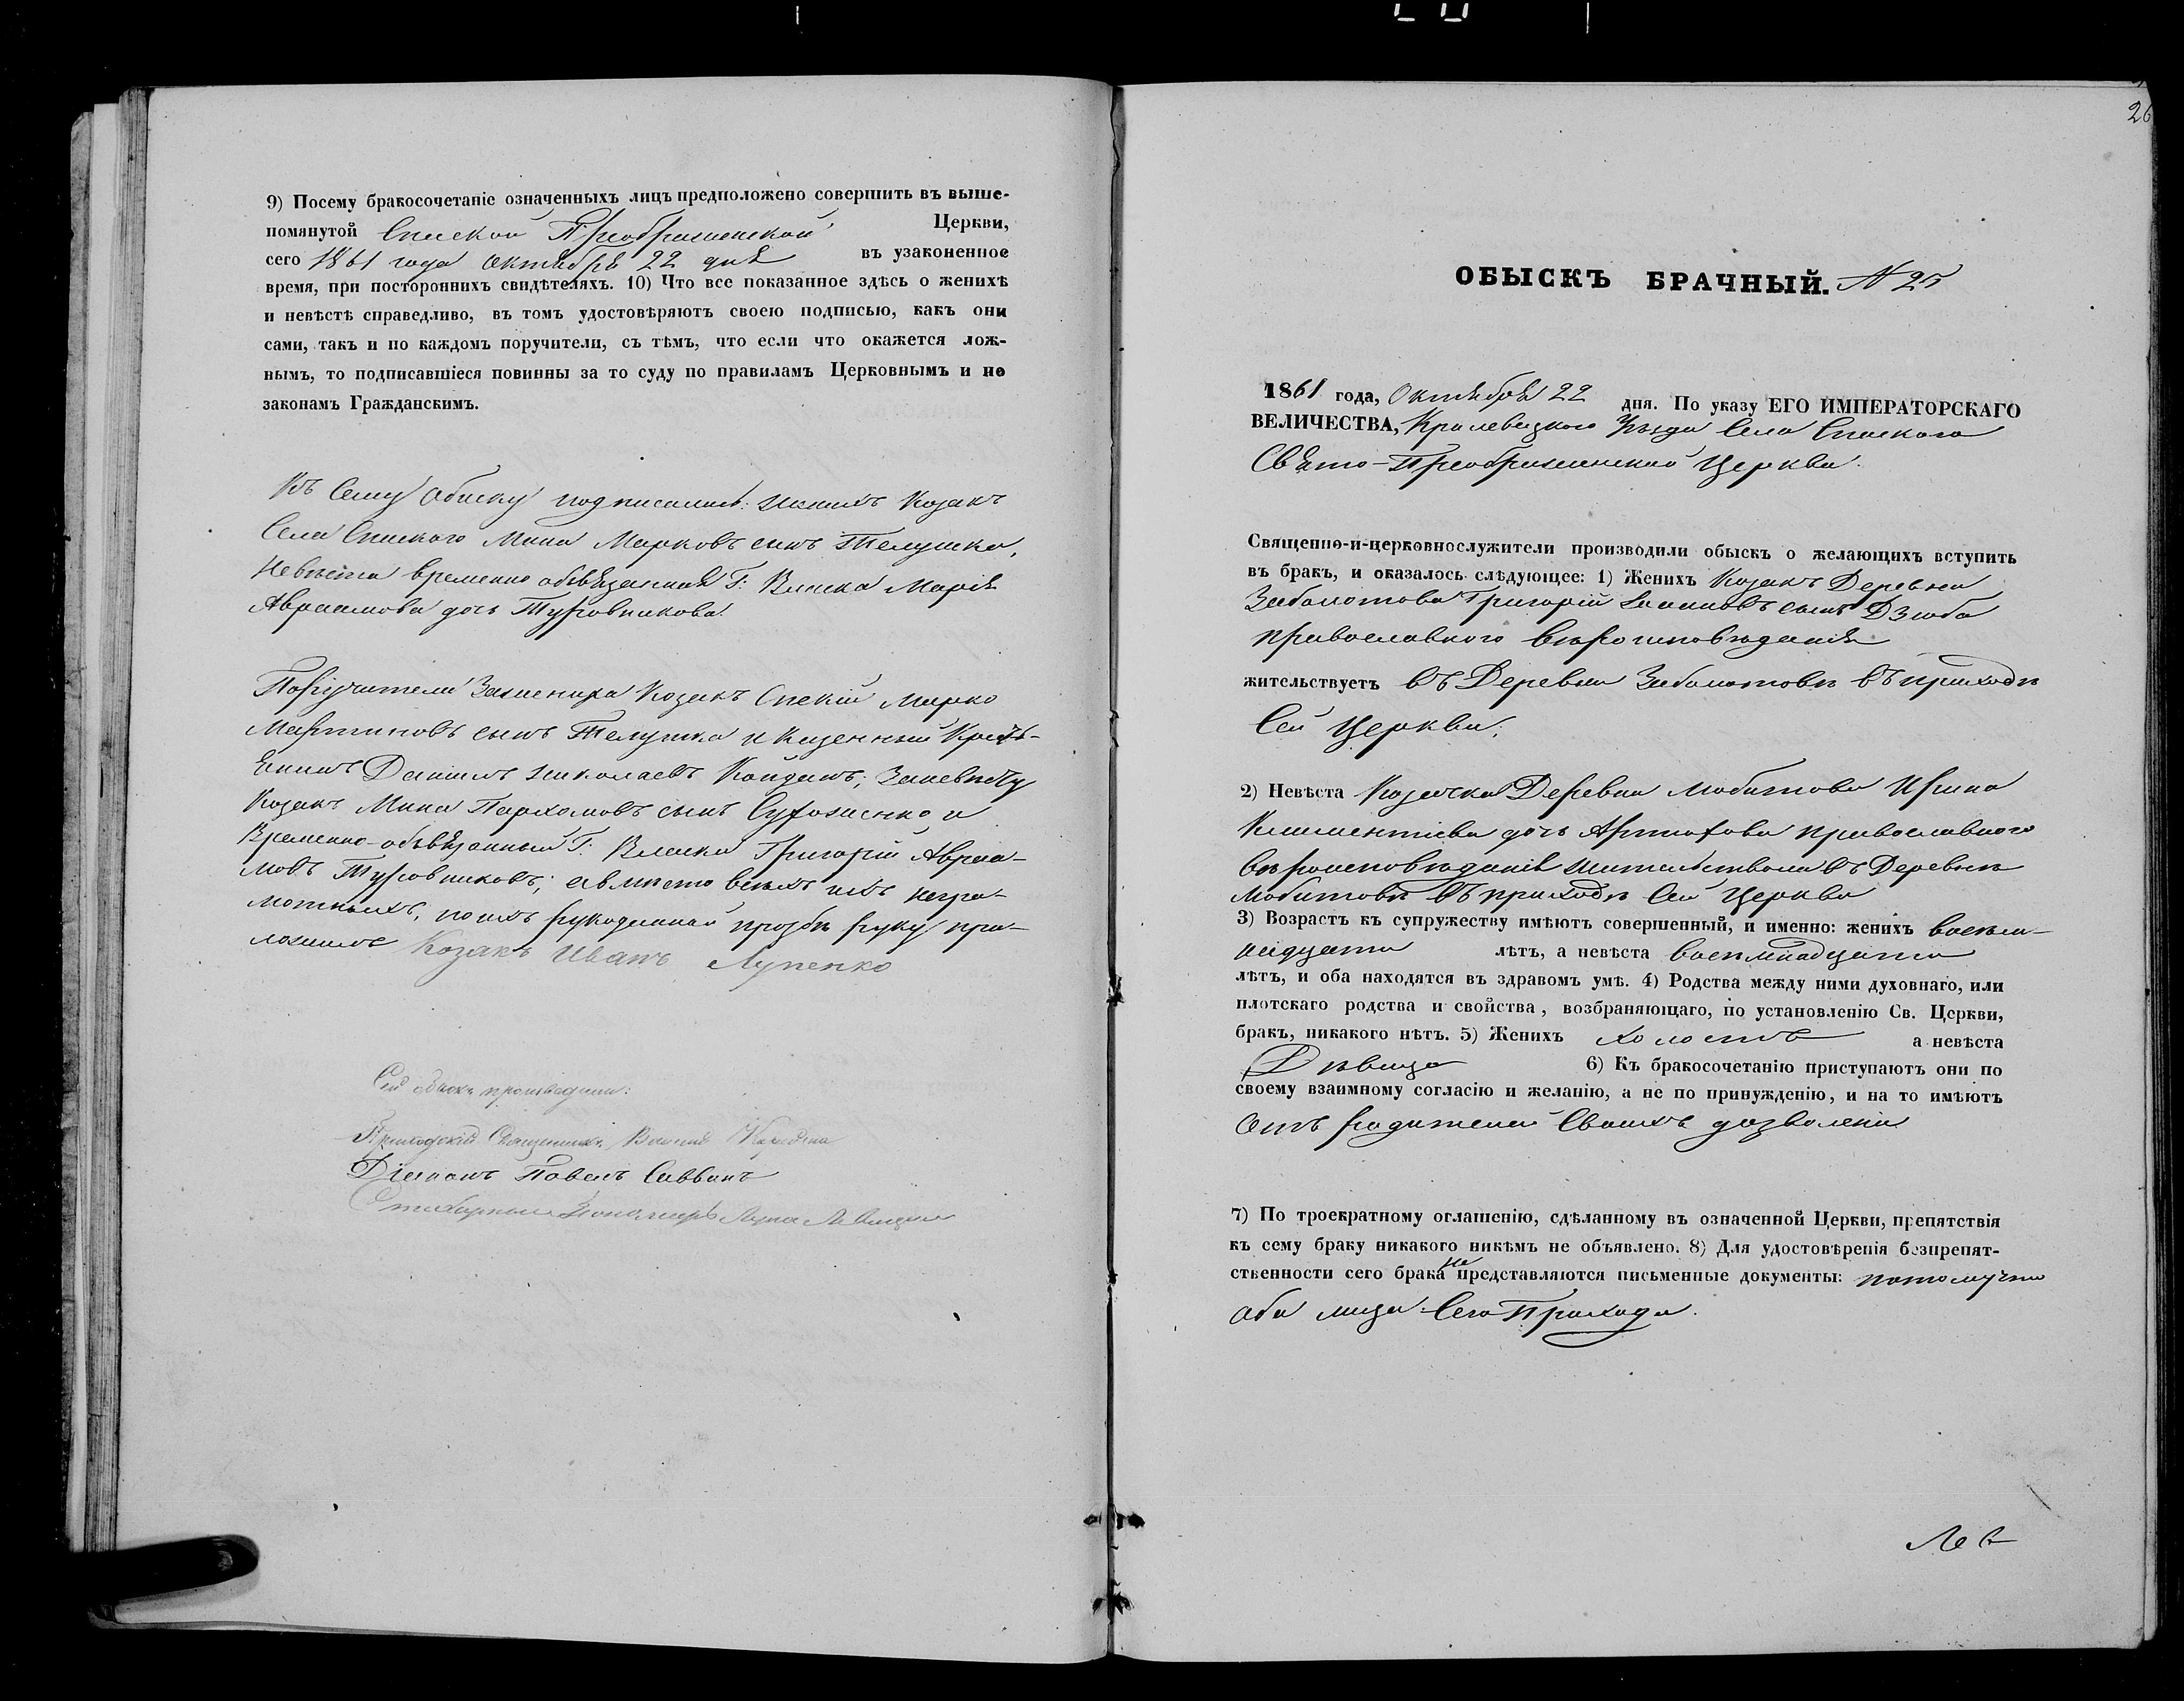 9) Посему бракосочетаніе означенныхъ лицъ предположено совершить въ выше-
помянутой Спаской Преображенской Церкви,
сего 1861 года Октября 22 дня въ узаконенное
время, при постороннихъ свидѣтеляхъ. 10) Что все показанное здѣсь о женихѣ
и невѣстѣ справедливо, въ томъ удостовѣряютъ своею подписью, какъ они
сами, такъ и по каждомъ поручители, съ тѣмъ, что если что окажется лож-
нымъ, то подписавшіеся повинны за то суду по правиламъ Церковнымъ и по
законамъ Гражданскимъ.
Къ Сему Обиску подписались: женихъ Козакъ
Села Спаского Мина Марковъ сынъ Телушка,
Невѣста временно обовязанная Г: Марія
Авраамова дочь Туровникова
Поручители Зажениха Козакъ Спскій Марко
Мартиновъ сынъ Телушка и Казенный Кресть-
янинъ Данилъ Николаевъ Койданъ; Заневѣсту
Козакъ Мина Пархомовъ сынъ и
Временно-обовязанный Г: Григорій Авраа-
мовъ Туровниковъ; авместо всехъ ихъ негра-
мотныхъ, поихъ рукоданной прозбѣ руку при-
ложилъ Козакъ Иванъ Лупенко
Сей обыскъ производили:
Приходскій Священникъ
Діаконъ Павелъ Саввинъ
Стихарный Пономарь
26
ОБЫСКЪ БРАЧНЫЙ. N 25
1861 года, Октября 22 дня. По указу ЕГО ИМПЕРАТОРСКАГО
ВЕЛИЧЕСТВА, Кролевецкого Уѣзда Села Спаского
Свято-Преображенской Церкви.
Священно-и-церковнослужители производили обыскъ о желающихъ вступить
въ бракъ, и оказалось слѣдующее: 1) Женихъ Козакъ Деревни
Заболотова Григорій сынъ Дзюба
православного вѣроисповѣданія
жительствуетъ въ Деревни Заболотовѣ въ приходѣ
Сей Церкви;
2) Невѣста Козачка Деревни Любитова Ирина
Климентіева дочь православного
вѣроисповѣданія жительствомъ въ Деревнѣ
Любитовѣ въ приходѣ Сей Церкви
3) Возрастъ къ супружеству имѣютъ совершенный, и именно: женихъ восем-
надцати лѣтъ, а невѣста восемнадцати
лѣтъ, и оба находятся въ здравомъ умѣ. 4) Родства между ними духовнаго, или
плотскаго родства и свойства, возбраняющаго, по установленію Св. Церкви,
бракъ, никакого нѣтъ. 5) Женихъ холостъ а невѣста
Дѣвица 6) Къ бракосочетанію приступаютъ они по
своему взаимному согласію и желанію, а не по принужденію, и на то имѣютъ
отъ родителей своихъ дозволеніе
7) По троекратному оглашенію, сдѣланному въ означенной Церкви, препятствія
къ сему браку никакого никѣмъ не объявлено. 8) Для удостовѣренія безпрепят-
ственности сего брака не представляются письменные документы: потомучто
оба лица Сего Прихода.